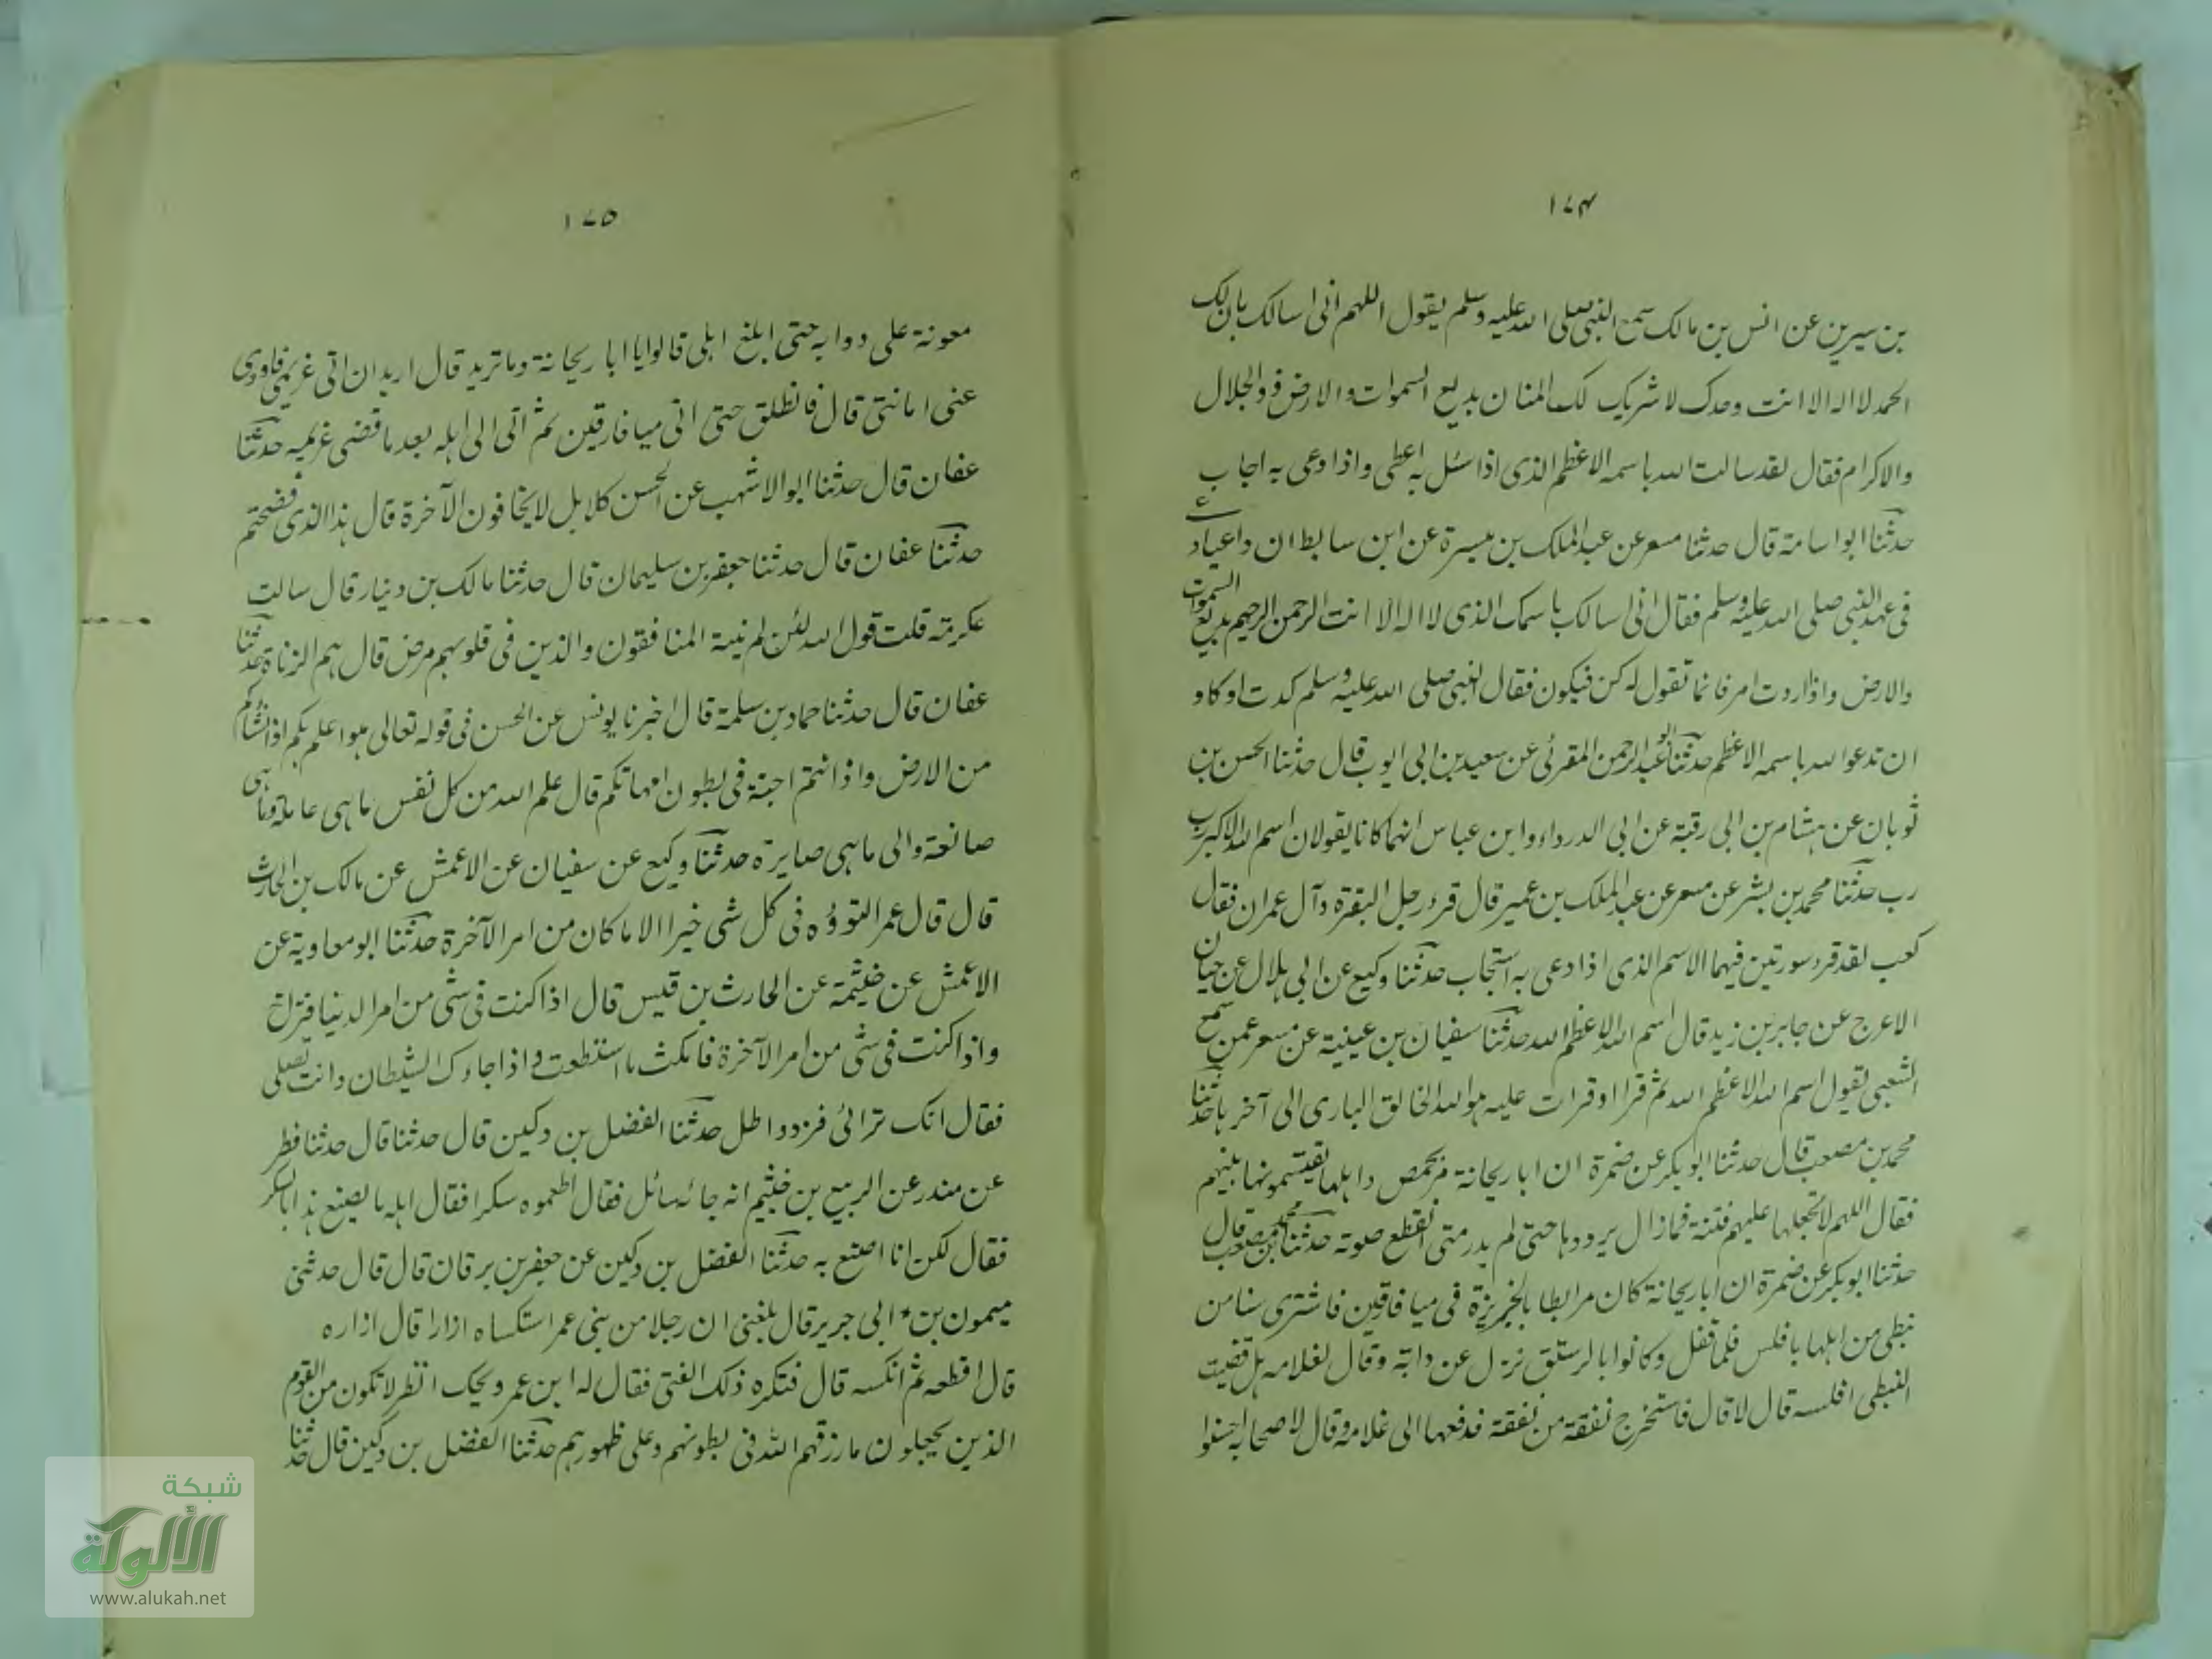 ١٧٤
بن سيرين عن انس بن مالك سمع النبى صلى الله عليه وسلم يقول اللهم انى اسالك بان لك
الحمد لا اله الا انت وحدك لا شريك لك المنان بديع السموات والارض ذو الجلال
والاكرام فقال لقد سالت الله باسمه الاعظم الذى اذا سئل به اعطى واذا دعى به اجاب
حدثنا ابو اسامة قال حدثنا مسعر عن عبد الملك بن ميسرة عن ابن سابط ان داعيا دعا
فى عهد النبى صلى الله عليه وسلم فقال انى اسالك باسمك الذى لا اله الا انت الرحمن الرحيم بديع السموات
والارض واذا اردت امر فانما تقول له كن فيكون فقال النبى صلى الله عليه وسلم كدت او كاد
ان تدعو الله باسمه الاعظم حدثنا ابو عبد الرحمن المقرئى عن سعيد بن ابى ايوب قال حدثنا الحسن بن
ثوبان عن هشام بن ابى رقية عن ابى الدرداء وابن عباس انهما كانا يقولان اسم الله الاكبر رب
رب حدثنا محمد بن بشر عن مسعر عن عبد الملك بن عمير قال قرء رجل البقرة وآل عمران فقال
كعب لقد قرء سورتين فيهما الاسم الذى اذا دعى به استجاب حدثنا وكيع عن ابى هلال عن حيان
الاعرج عن جابر بن زيد قال اسم الله الاعظم الله حدثنا سفيان بن عيينة عن مسعر عمن سمع
الشعبى يقول اسم الله الاعظم الله ثم قرا او قرات عليه هو الله الخالق البارى الى آخرها حدثنا
محمد بن مصعب قال حدثنا ابو بكر عن ضمرة ان ابا ريحانة مر بحمص واهلها يقتسمونها بينهم
فقال اللهم لا تجعلها عليهم فتنة فما زال يرددها حتى لم يدر متى انقطع صوته حدثنا محمد بن مصعب قال
حدثنا ابو بكر عن ضمرة ان ابا ريحانة كان مرابطا بالجزيرة فى ميافارقين فاشترى سنا من
نبطى من اهلها بافلس فلما قفل وكانوا بالرستق نزل عن دابته وقال لغلامه هل قضيت
النبطى افلسه قال لا قال فاستخرج نفقة من نفقة فدفعها الى غلامه وقال لاصحابه احسنوا
١٧٥
معونة على دوابه حتى ابلغ اهلى قالوا يا ابا ريحانة وما تريد قال اريد ان اتى غريمى فاودى
عنى امانتى قال فانطلق حتى اتى ميافارقين ثم اتى الى اهله بعد ما قضى غريمه حدثنا
عفان قال حدثنا ابو الاشهب عن الحسن كلا بل لا يخافون الآخرة قال هذا الذى فضحتم
حدثنا عفان قال حدثنا جعفر بن سليمان قال حدثنا مالك بن دينار قال سالت
عكرمة قلت قول الله لئن لم ينته المنافقون والذين فى قلوبهم مرض قال هم الزناة حدثنا
عفان قال حدثنا حماد بن سلمة قال اخبرنا يونس عن الحسن فى قوله تعالى هو اعلم بكم اذ انشاكم
من الارض واذ انتم اجنة فى بطون امهاتكم قال علم الله من كل نفس ما هى عاملة وما هى
صانعة والى ما هى صايرة حدثنا وكيع عن سفيان عن الاعمش عن مالك بن الحارث
قال قال عمر التوؤده فى كل شى خير الا ما كان من امر الآخرة حدثنا ابو معاوية عن
الاعمش عن خيثمة عن الحارث بن قيس قال اذا كنت فى شى من امر الدنيا فتزلح
واذا كنت فى شى من امر الآخرة فامكث ما استطعت واذا جاءك الشيطان وانت تصلى
فقال انك ترائى فزد واطل حدثنا الفضل بن دكين قال حدثنا قال حدثنا فطر
عن منذر عن الربيع بن خثيم انه جائه سائل فقال اطعموه سكرا فقال اهله ما يصنع هذا بالسكر
فقال لكن انا اصنع به حدثنا الفضل بن دكين عن جعفر بن برقان قال قال حدثنى
ميمون بن ابى جرير قال بلغنى ان رجلا من بنى عمر استكساه ازارا قال ازاره
قال اقطعه ثم انكسه قال فتكره ذلك الفتى فقال له ابن عمر ويحك انظر لا تكون من القوم
الذين يجعلون ما رزقهم الله فى بطونهم وعلى ظهورهم حدثنا الفضل بن دكين قال حدثنا
شبكة
الألوكة
www.alukah.net